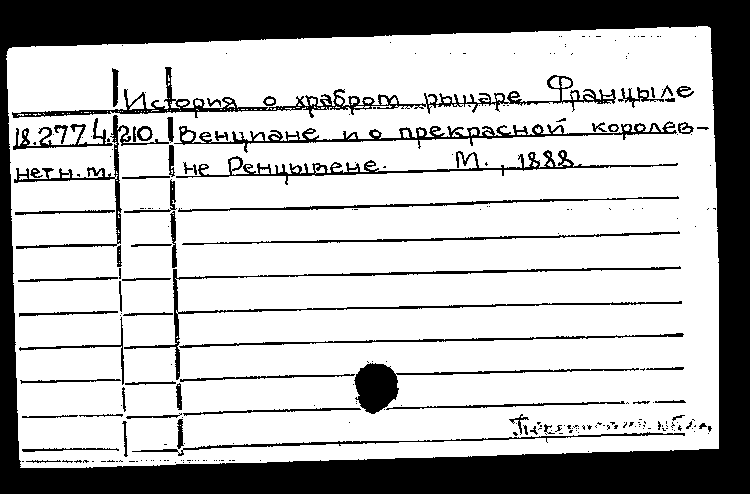 История о храбром рыцаре Францыле
18.277 4.210. Венциане и о прекрасной королев-
нет н.т. не Ренцывене. М., 1888.